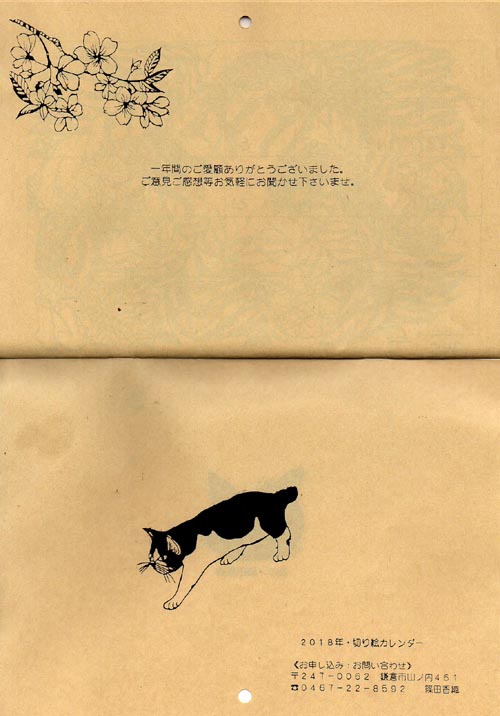 一年間のご愛顧ありがとうございました。
ご意見ご感想等お気軽にお聞かせ下さいませ。
2018年・切り絵カレンダー
《お申し込み・お問い合わせ》
〒247-0062 鎌倉市山ノ内461
☎0467-22-8592 篠田香織